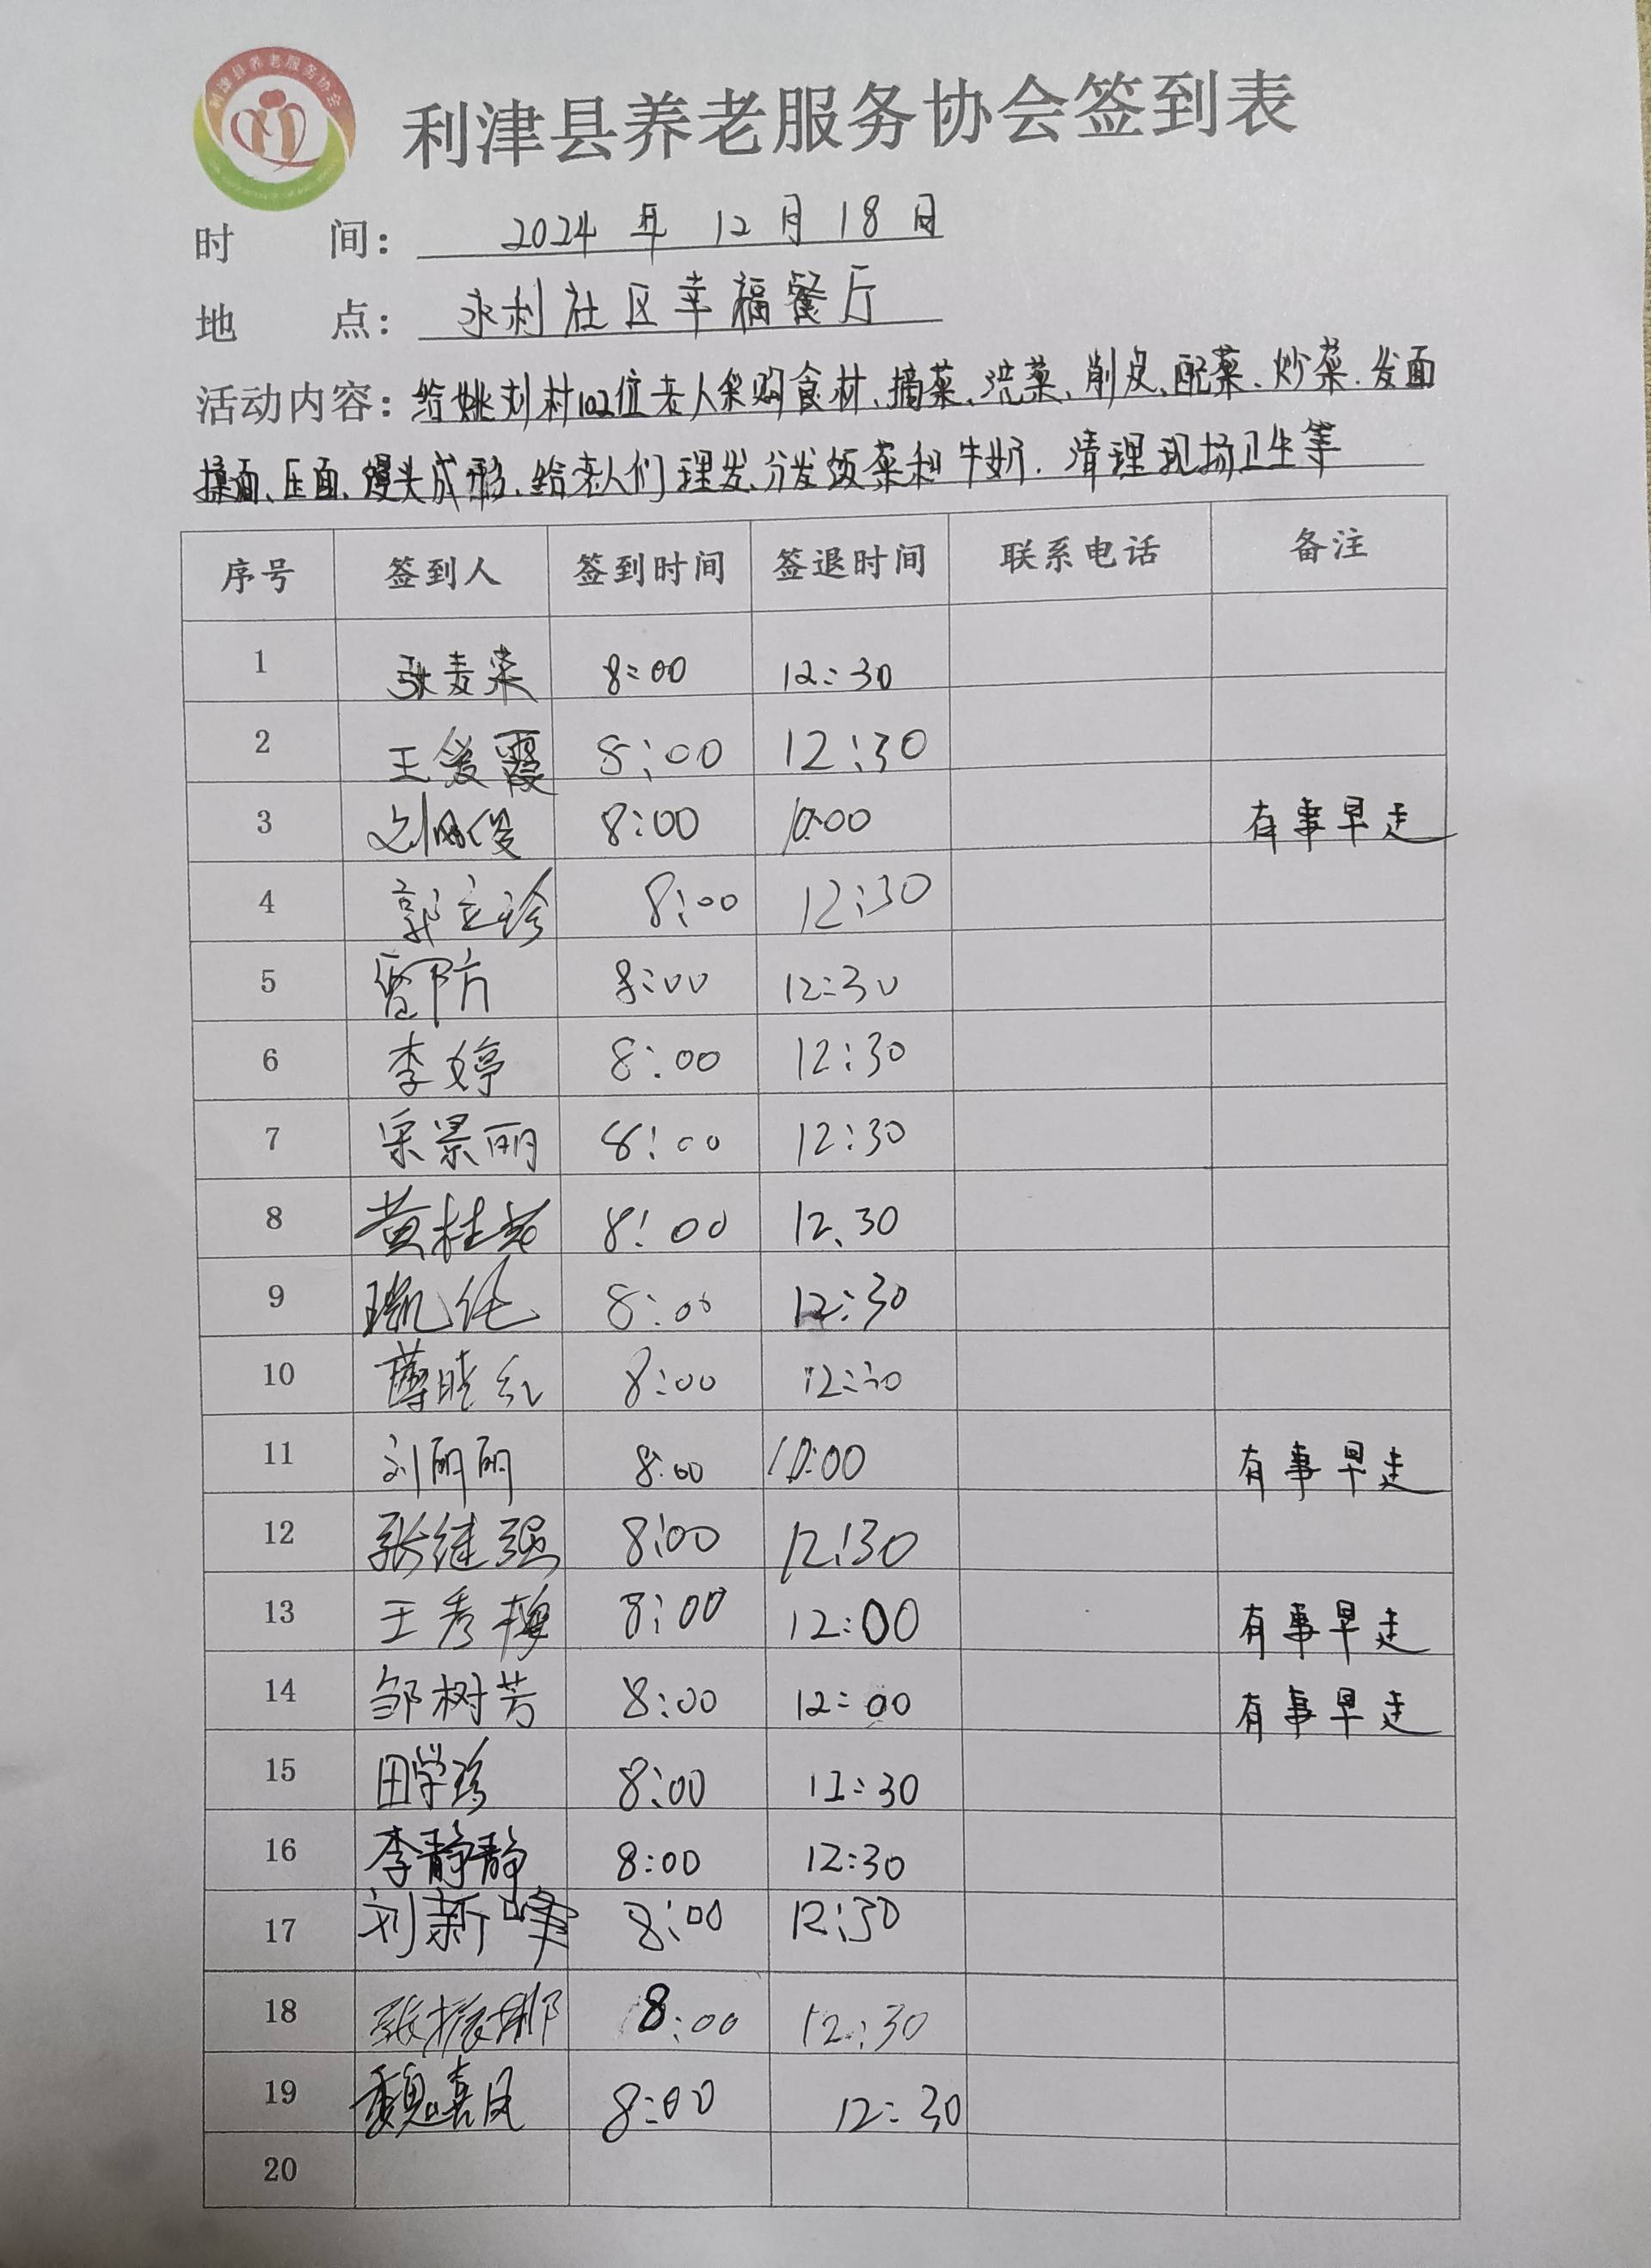 利津县养老服务协会
利津县养老服务协会签到表
时 间: 2024 年 12 月 18 日
地 点: 永利社区幸福餐厅
活动内容: 给姚刘村102位老人采购食材、摘菜、洗菜、削皮、配菜、炒菜.发面
揉面、压面、馒头成形、给老人们理发、分发饭菜和牛奶.清理现场卫生等
序号 签到人 签到时间 签退时间 联系电话 备注
1 张麦荣 8:00 12:30
2 王爱霞 8:00 12:30
3 8:00 10:00 有事早走
4 郭立珍 8:00 12:30
5 8:00 12:30
6 李婷 8:00 12:30
7 宋景丽 8:00 12:30
8 黄桂 8:00 12.30
9 8:00 12:30
10 薄晓红 8:00 12:30
11 刘丽丽 8:00 10:00 有事早走
12 张继强 8:00 12:30
13 王秀梅 8:00 12:00 有事早走
14 邹树芳 8:00 12:00 有事早走
15 田学珍 8:00 12:30
16 李静静 8:00 12:30
17 刘新峰 8:00 12:30
18 张振 8:00 12:30
19 魏嘉凤 8:00 12:30
20